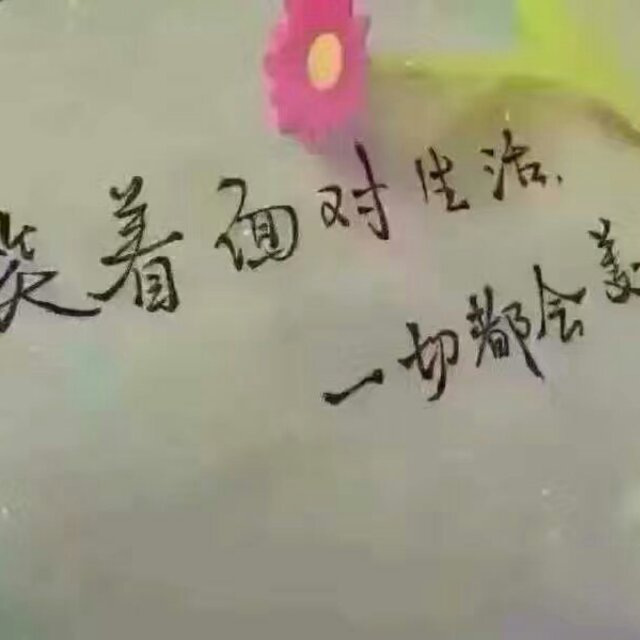 笑着面对生活
一切都会美